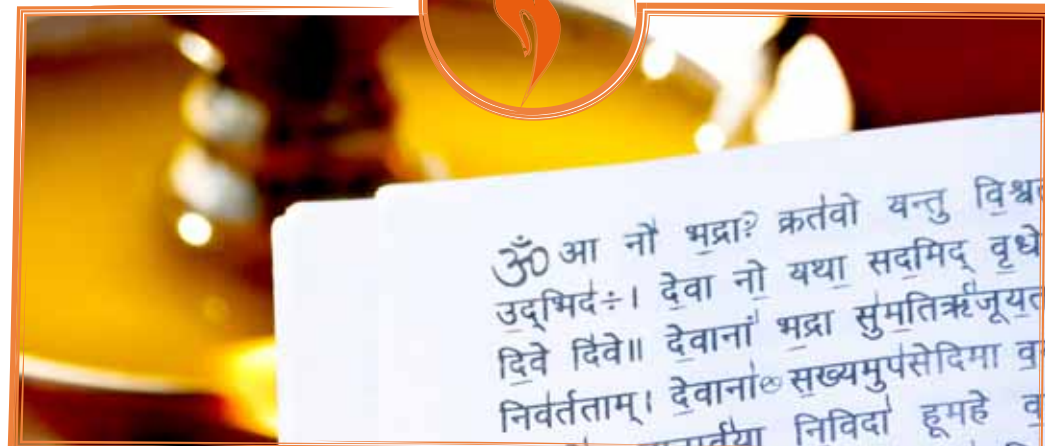 ॐ आ नो॑ भ॒द्राः क्रत॑वो यन्तु वि॒श्व
उ॒द्भिदः॑। दे॒वा नो॒ यथा॒ सद॒मिद् वृ॒धे
दि॒वे दि॑वे॥ दे॒वानां॑ भ॒द्रा सु॑म॒तिर्ऋ॑जूय॒त
निव॑र्तताम्। दे॒वाना॑ᳪ स॒ख्यमुप॑सेदिमा व॒
निविदा॑ हूमहे व॒